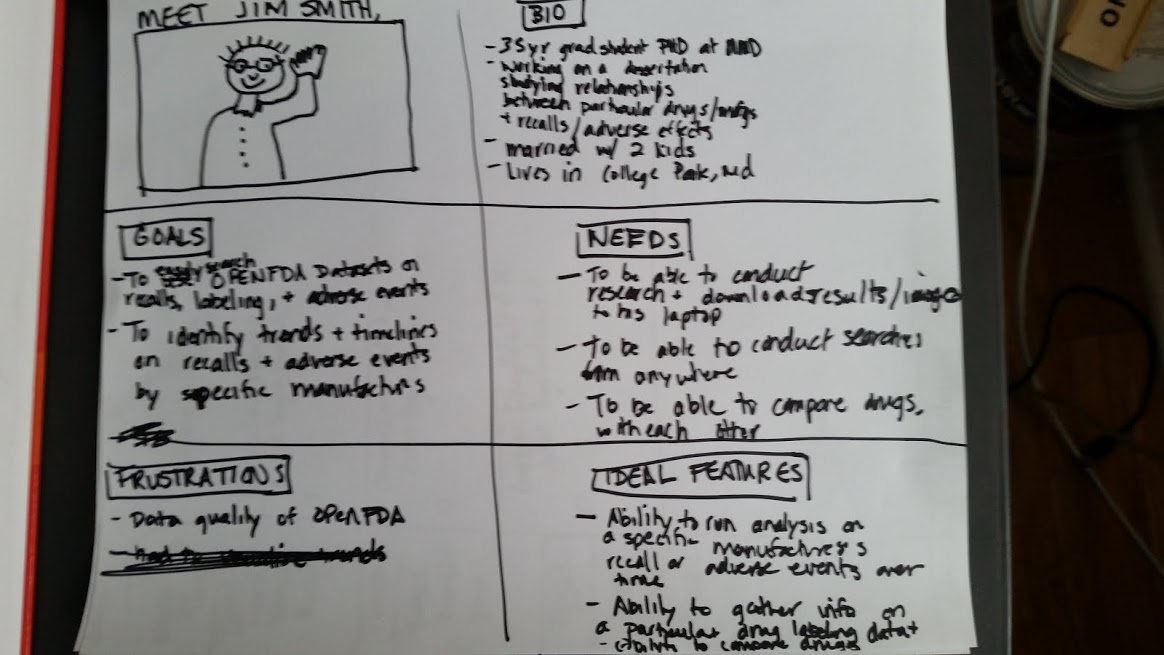 MEET JIM SMITH,
BIO
- 35yr grad student PHD at UMD
- working on a dissertation
studying relationships
between particular drugs/mfgs
+ recalls/adverse effects
- married w/ 2 kids
- Lives in College Park, md
GOALS
- To easily search OPENFDA Datasets on
recalls, labeling, + adverse events
- To identify trends + timelines
on recalls + adverse events
by specific manufactrs
NEEDS
- To be able to conduct
research + download results/image
to his laptop
- To be able to conduct searches
from anywhere
- To be able to compare drugs,
with each other
FRUSTRATIONS
- Data quality of OPENFDA
IDEAL FEATURES
- Ability to run analysis on
a specific manufacturer's
recall or adverse events over
time
- Ability to gather info on
a particular drug labeling data +
- ability to compare drugs
OR